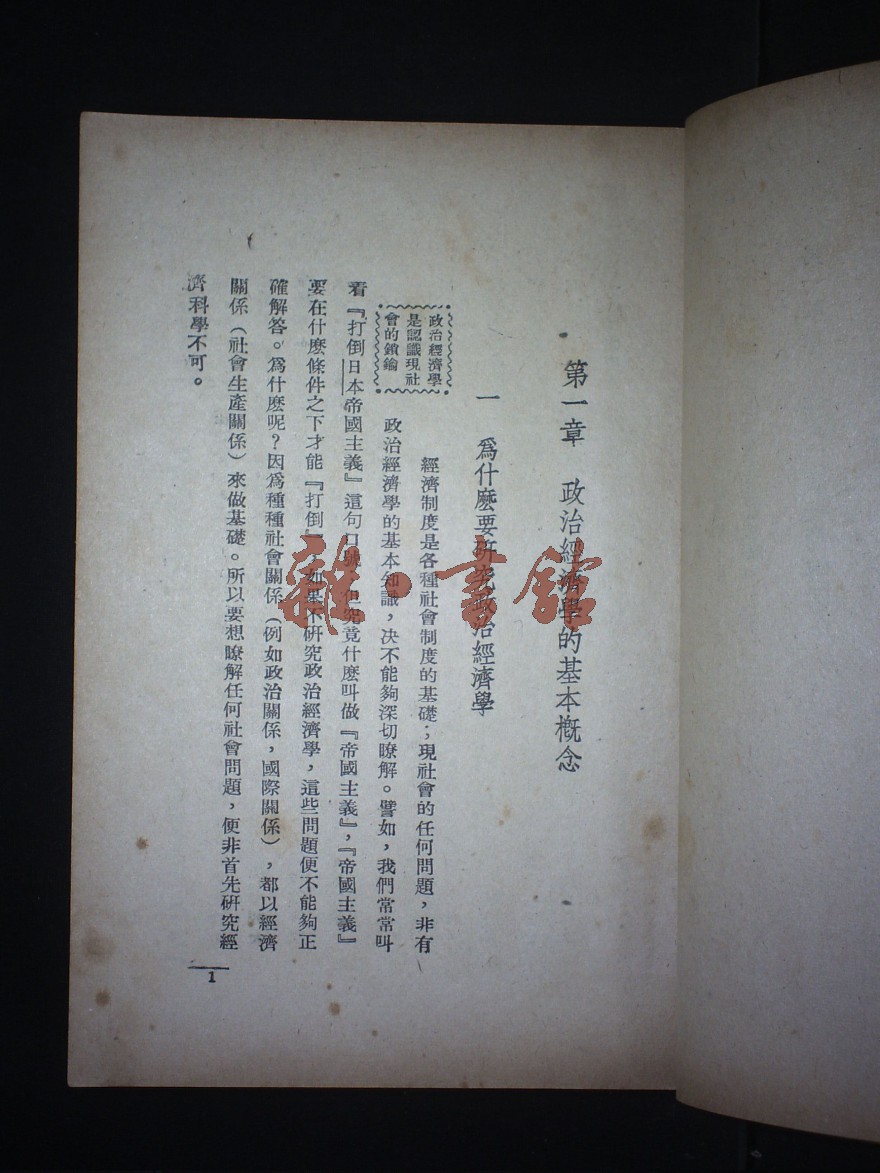 第一章　政治經濟學的基本概念
一　爲什麽要研究政治經濟學
政治經濟學
是認識現社
會的鎖鑰
經濟制度是各種社會制度的基礎；現社會的任何問題，非有
政治經濟學的基本知識，決不能夠深切瞭解。譬如，我們常常叫
着『打倒日本帝國主義』這句口號，但究竟什麽叫做『帝國主義』，『帝國主義』
要在什麽條件之下才能『打倒』，如果不研究政治經濟學，這些問題便不能夠正
確解答。爲什麽呢？因爲種種社會關係（例如政治關係，國際關係），都以經濟
關係（社會生產關係）來做基礎。所以要想瞭解任何社會問題，便非首先研究經
濟科學不可。
1
雜·書館